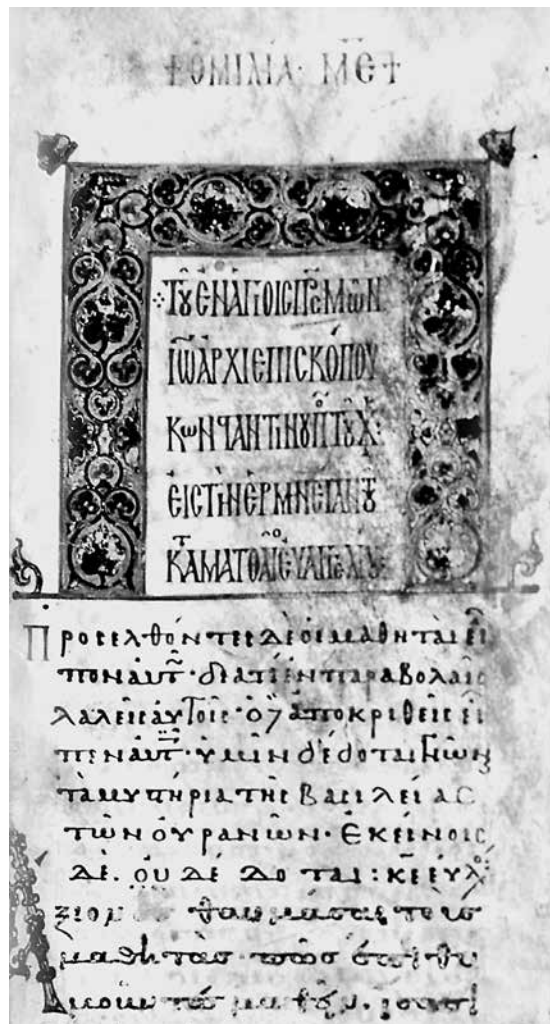 + ὉΜΙΛΙΑ· ΜΕ +
ΤΟΥ ΕΝ ΑΓΙΟΙΣ ΠΡΣ ΗΜΩΝ
ΙΩ ΑΡΧΙΕΠΙΣΚΟΠΟΥ
ΚΩΝΣΤΑΝΤΙΝΟΥΠ ΤΟΥ Χ:
ΕΙΣ ΤΗΝ ΕΡΜΝΕΙΑΝ ΤΟΥ
ΚΑΤΑ ΜΑΤΘΑΙΟΝ ΕΥΑΓΓΕΛΙΟΥ
Προσελθόντες δὲ οἱ μαθηταὶ εἶ
πον αὐτῷ· διατί ἐν παραβολαῖς
λαλεῖς αὐτοῖς· ὁ δὲ ἀποκριθεὶς εἶ
πεν αὐτοῖς· ὑμῖν δέδοται γνῶν
τὰ μυστήρια τῆς βασιλείας
τῶν οὐρανῶν· ἐκείνοις
δὲ. οὐ δέδοται:
ἄξιον θαυμάσαι τοὺς
μαθητὰς πῶς ἐπιθυ
μοῦντες μαθεῖν.